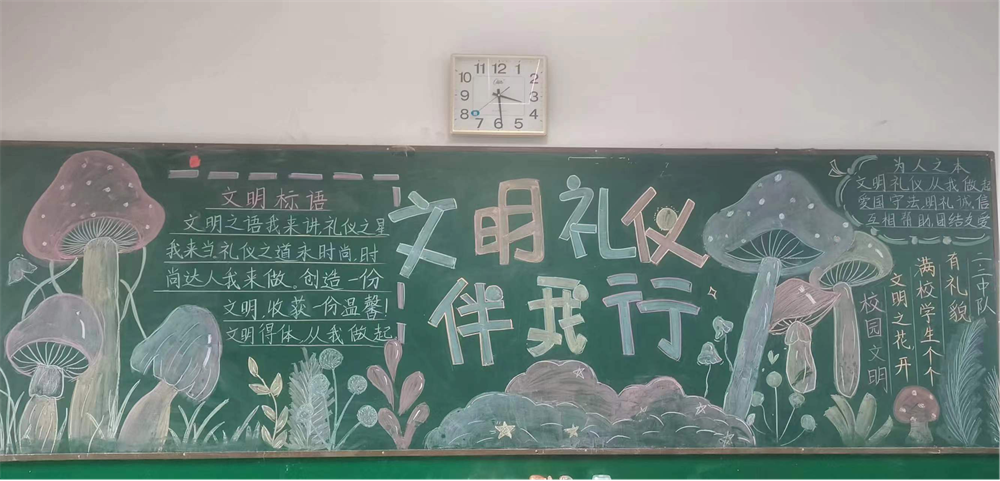 12
1
2
3
4
5
6
7
8
9
10
11
文明标语
文明之语我来讲礼仪之星
我来当礼仪之道永时尚,时
尚达人我来做。创造一份
文明,收获一份温馨!
文明得体,从我做起
文明礼仪
伴我行
为人之本
文明礼仪从我做起
爱国守法,明礼诚信
互相帮助,团结友爱
二(二)中队
有礼貌
满校学生个个
文明之花开
校园文明